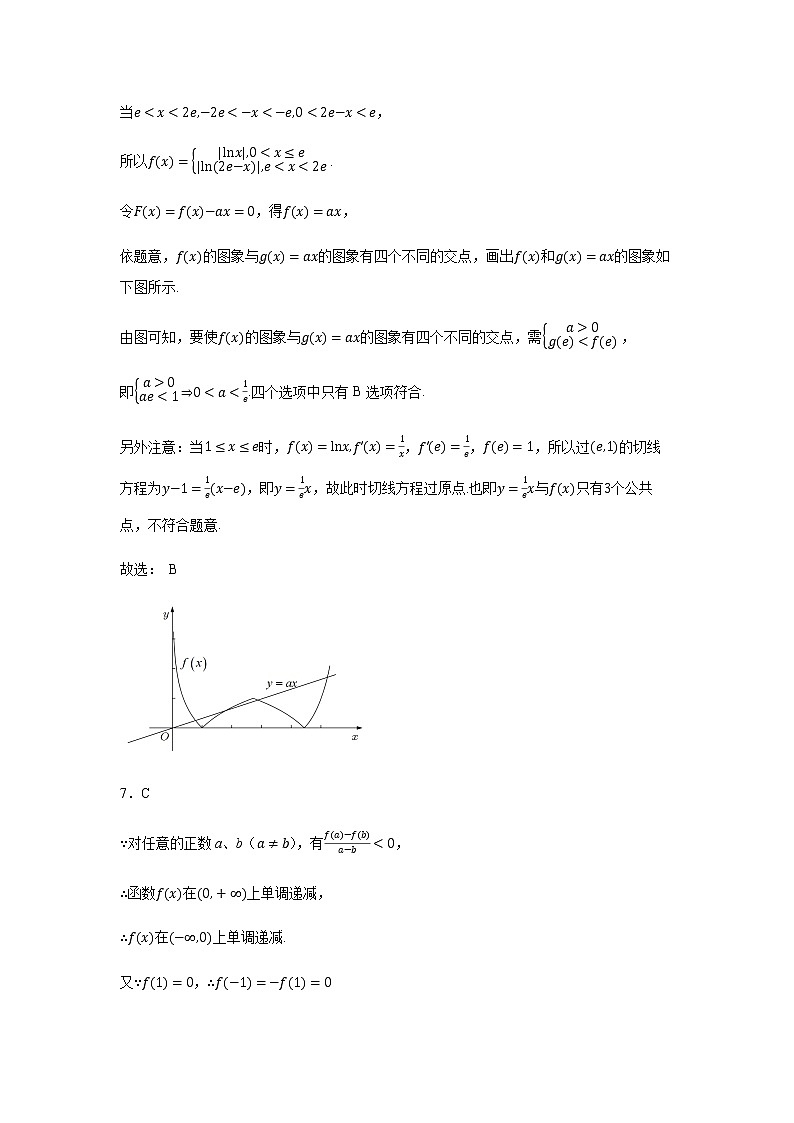 当e<x<2e,−2e<−x<−e,0<2e−x<e，
所以f(x)={|lnx|,0<x≤e |ln(2e−x)|,e<x<2e .
令F(x)=f(x)−ax=0，得f(x)=ax，
依题意，f(x)的图象与g(x)=ax的图象有四个不同的交点，画出f(x)和g(x)=ax的图象如
下图所示.
由图可知，要使f(x)的图象与g(x)=ax的图象有四个不同的交点，需{a>0 g(e)<f(e) ，
即{a>0 ae<1⇒0<a<1/e.四个选项中只有 B 选项符合.
另外注意：当1≤x≤e时，f(x)=lnx,f′(x)=1/x，f′(e)=1/e，f(e)=1，所以过(e,1)的切线
方程为y−1=1/e(x−e)，即y=1/e x，故此时切线方程过原点.也即y=1/e x与f(x)只有3个公共
点，不符合题意.
故选： B
y
f(x)
y=ax
O
x
7．C
∵对任意的正数 a、b（a≠b），有f(a)−f(b)/a−b<0，
∴函数f(x)在(0,+∞)上单调递减，
∴f(x)在(−∞,0)上单调递减.
又∵f(1)=0，∴f(−1)=−f(1)=0